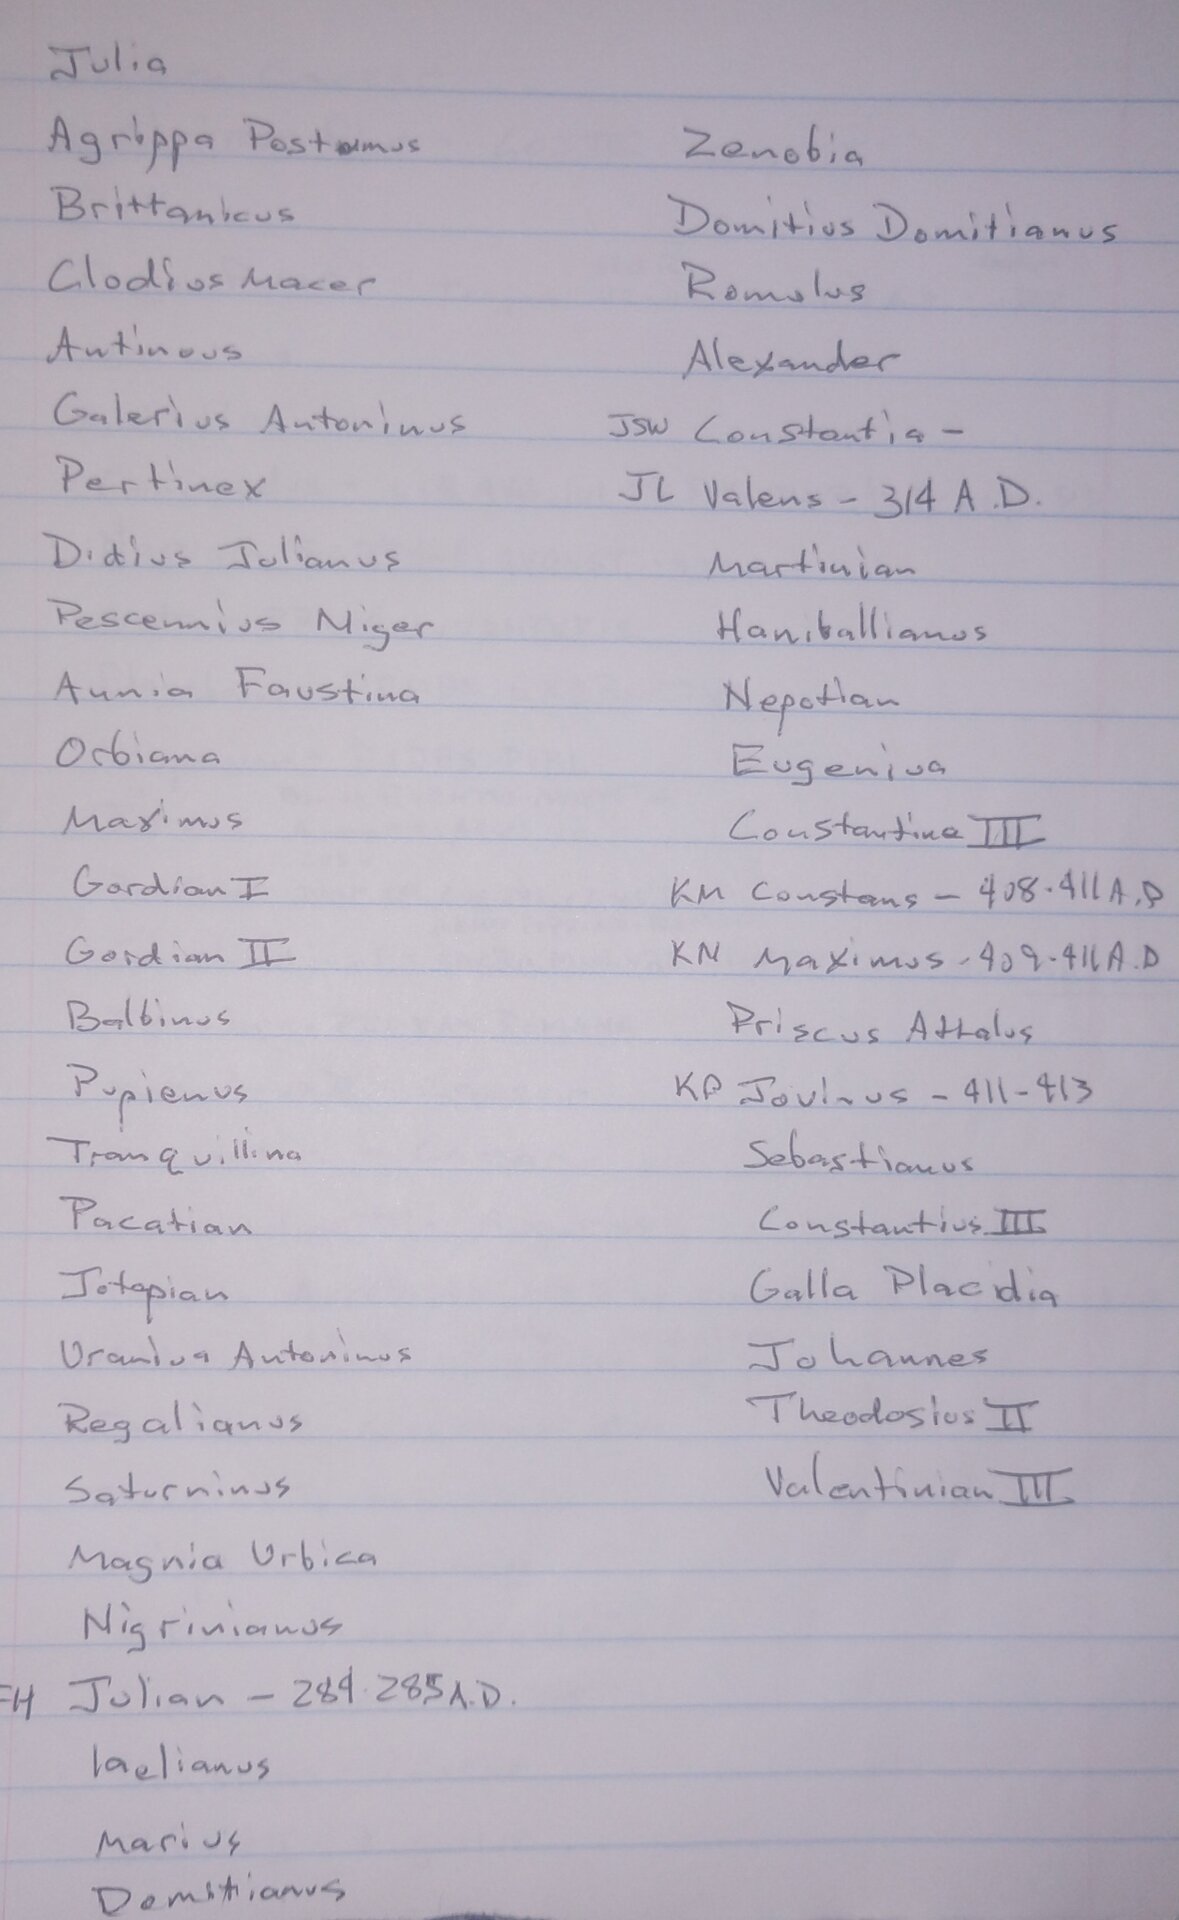 Julia
Agrippa Postumus
Brittanicus
Clodius Macer
Antinous
Galerius Antoninus
Pertinex
Didius Julianus
Pescennius Niger
Annia Faustina
Orbiana
Maximus
Gordian I
Gordian II
Balbinus
Pupienus
Tranquillina
Pacatian
Jotapian
Uranius Antoninus
Regalianus
Saturninus
Magnia Urbica
Nigrinianus
Julian - 284-285 A.D.
laelianus
Marius
Domitianus
Zenobia
Domitius Domitianus
Romulus
Alexander
JSW Constantia -
JL Valens - 314 A.D.
Martinian
Haniballianus
Nepotian
Eugenius
Constantine III
KM Constans - 408-411 A.D
KN Maximus - 409-411 A.D
Priscus Attalus
KP Jovinus - 411-413
Sebastianus
Constantius III
Galla Placidia
Johannes
Theodosius II
Valentinian III